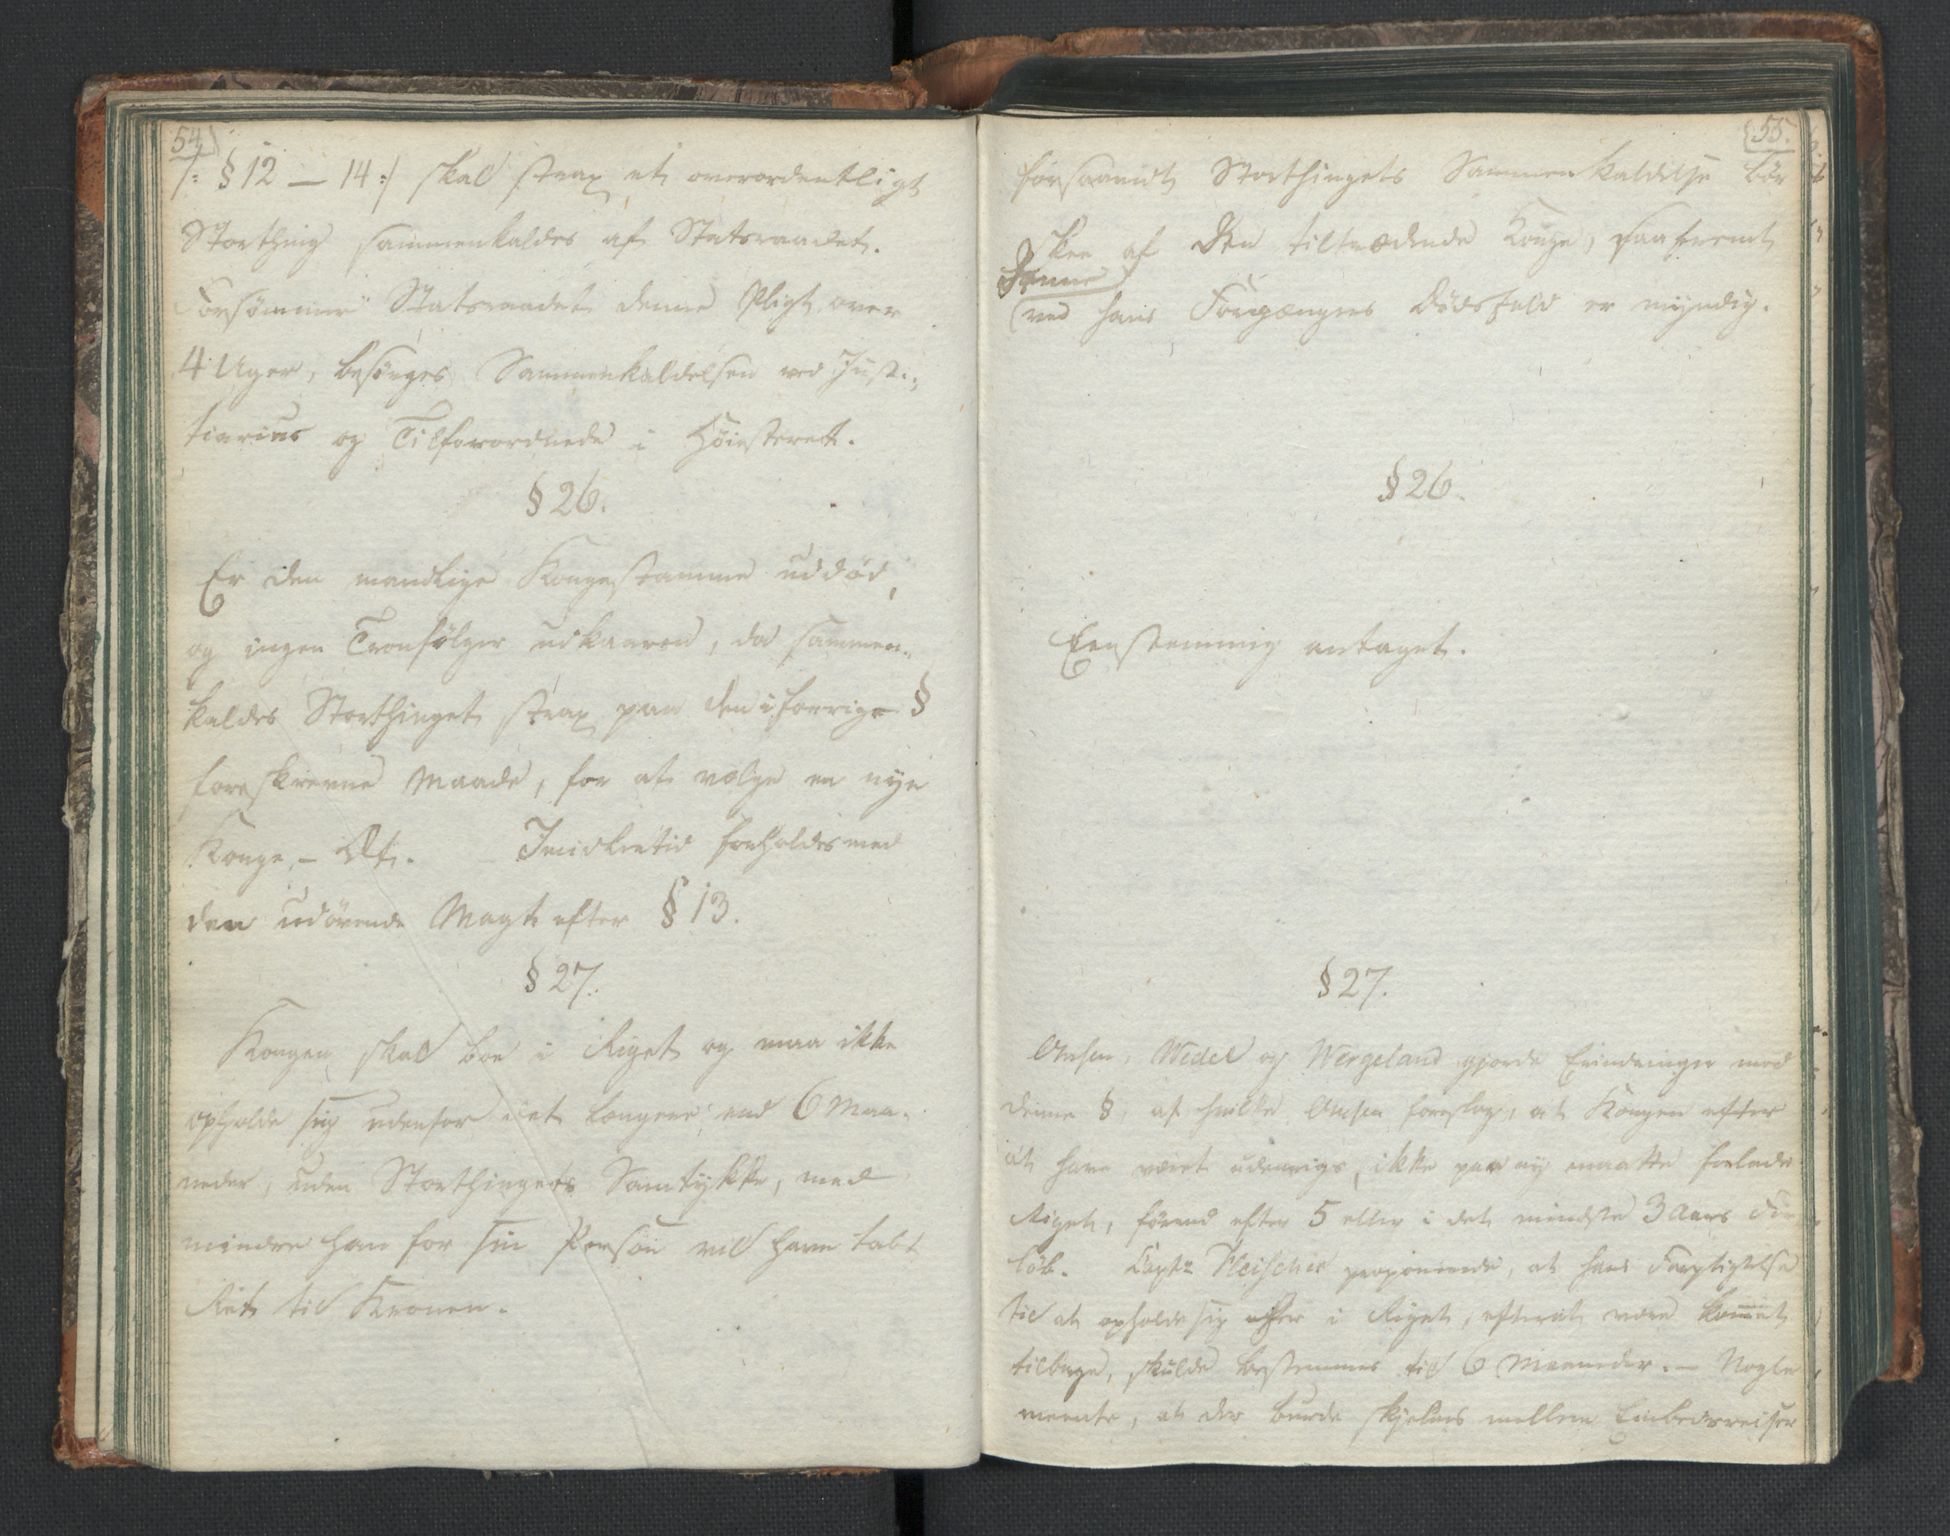 54
/: § 12 — 14 :/ skal strax et overordentligt
Storthing sammenkaldes af Statsraadet.
Forsømmer Statsraadet denne Pligt over
4 Uger, besørges Sammenkaldelsen ved Just..
tiarius og Tilforordnede i Høiesteret.
§ 26.
Er den mandlige Kongestamme uddød,
og ingen Tronfølger udkaaren, da sammen..
kaldes Storthinget strax paa den i forrige §
foreskrevne Maade, for at vælge en nye
Konge – Æt. Imidlertid forholdes med
den udøvende Magt efter § 13.
§ 27.
Kongen skal boe i Riget og maa ikke
opholde sig udenfor det længere end 6 Maa..
neder, uden Storthingets Samtykke, med
mindre han for sin Person vil have tabt
Ret til Kronen.
55.
forsaavidt Storthingets Sammenkaldelse bør
skee af den tiltrædende Konge, saafremt
denne
ved hans Forgængers Dødsfald er myndig.
§ 26.
Eenstemmig antaget.
§ 27.
Omsen, Wedel og Wergeland gjorde Erindringer mod
denne §, af hvilke Omsen foreslog, at Kongen efter
at have været udenrigs, ikke paa ny maatte forlade
Riget, førend efter 5 eller i det mindste 3 Aars For
løb. Captn Fleischer proponerede, at hans Forpligtelse
til at opholde sig efter i Riget, efterat være kommet
tilbage, skulde bestemmes til 6 Maaneder. – Nogle
meente, at der burde skjelnes mellem Embedsreiser